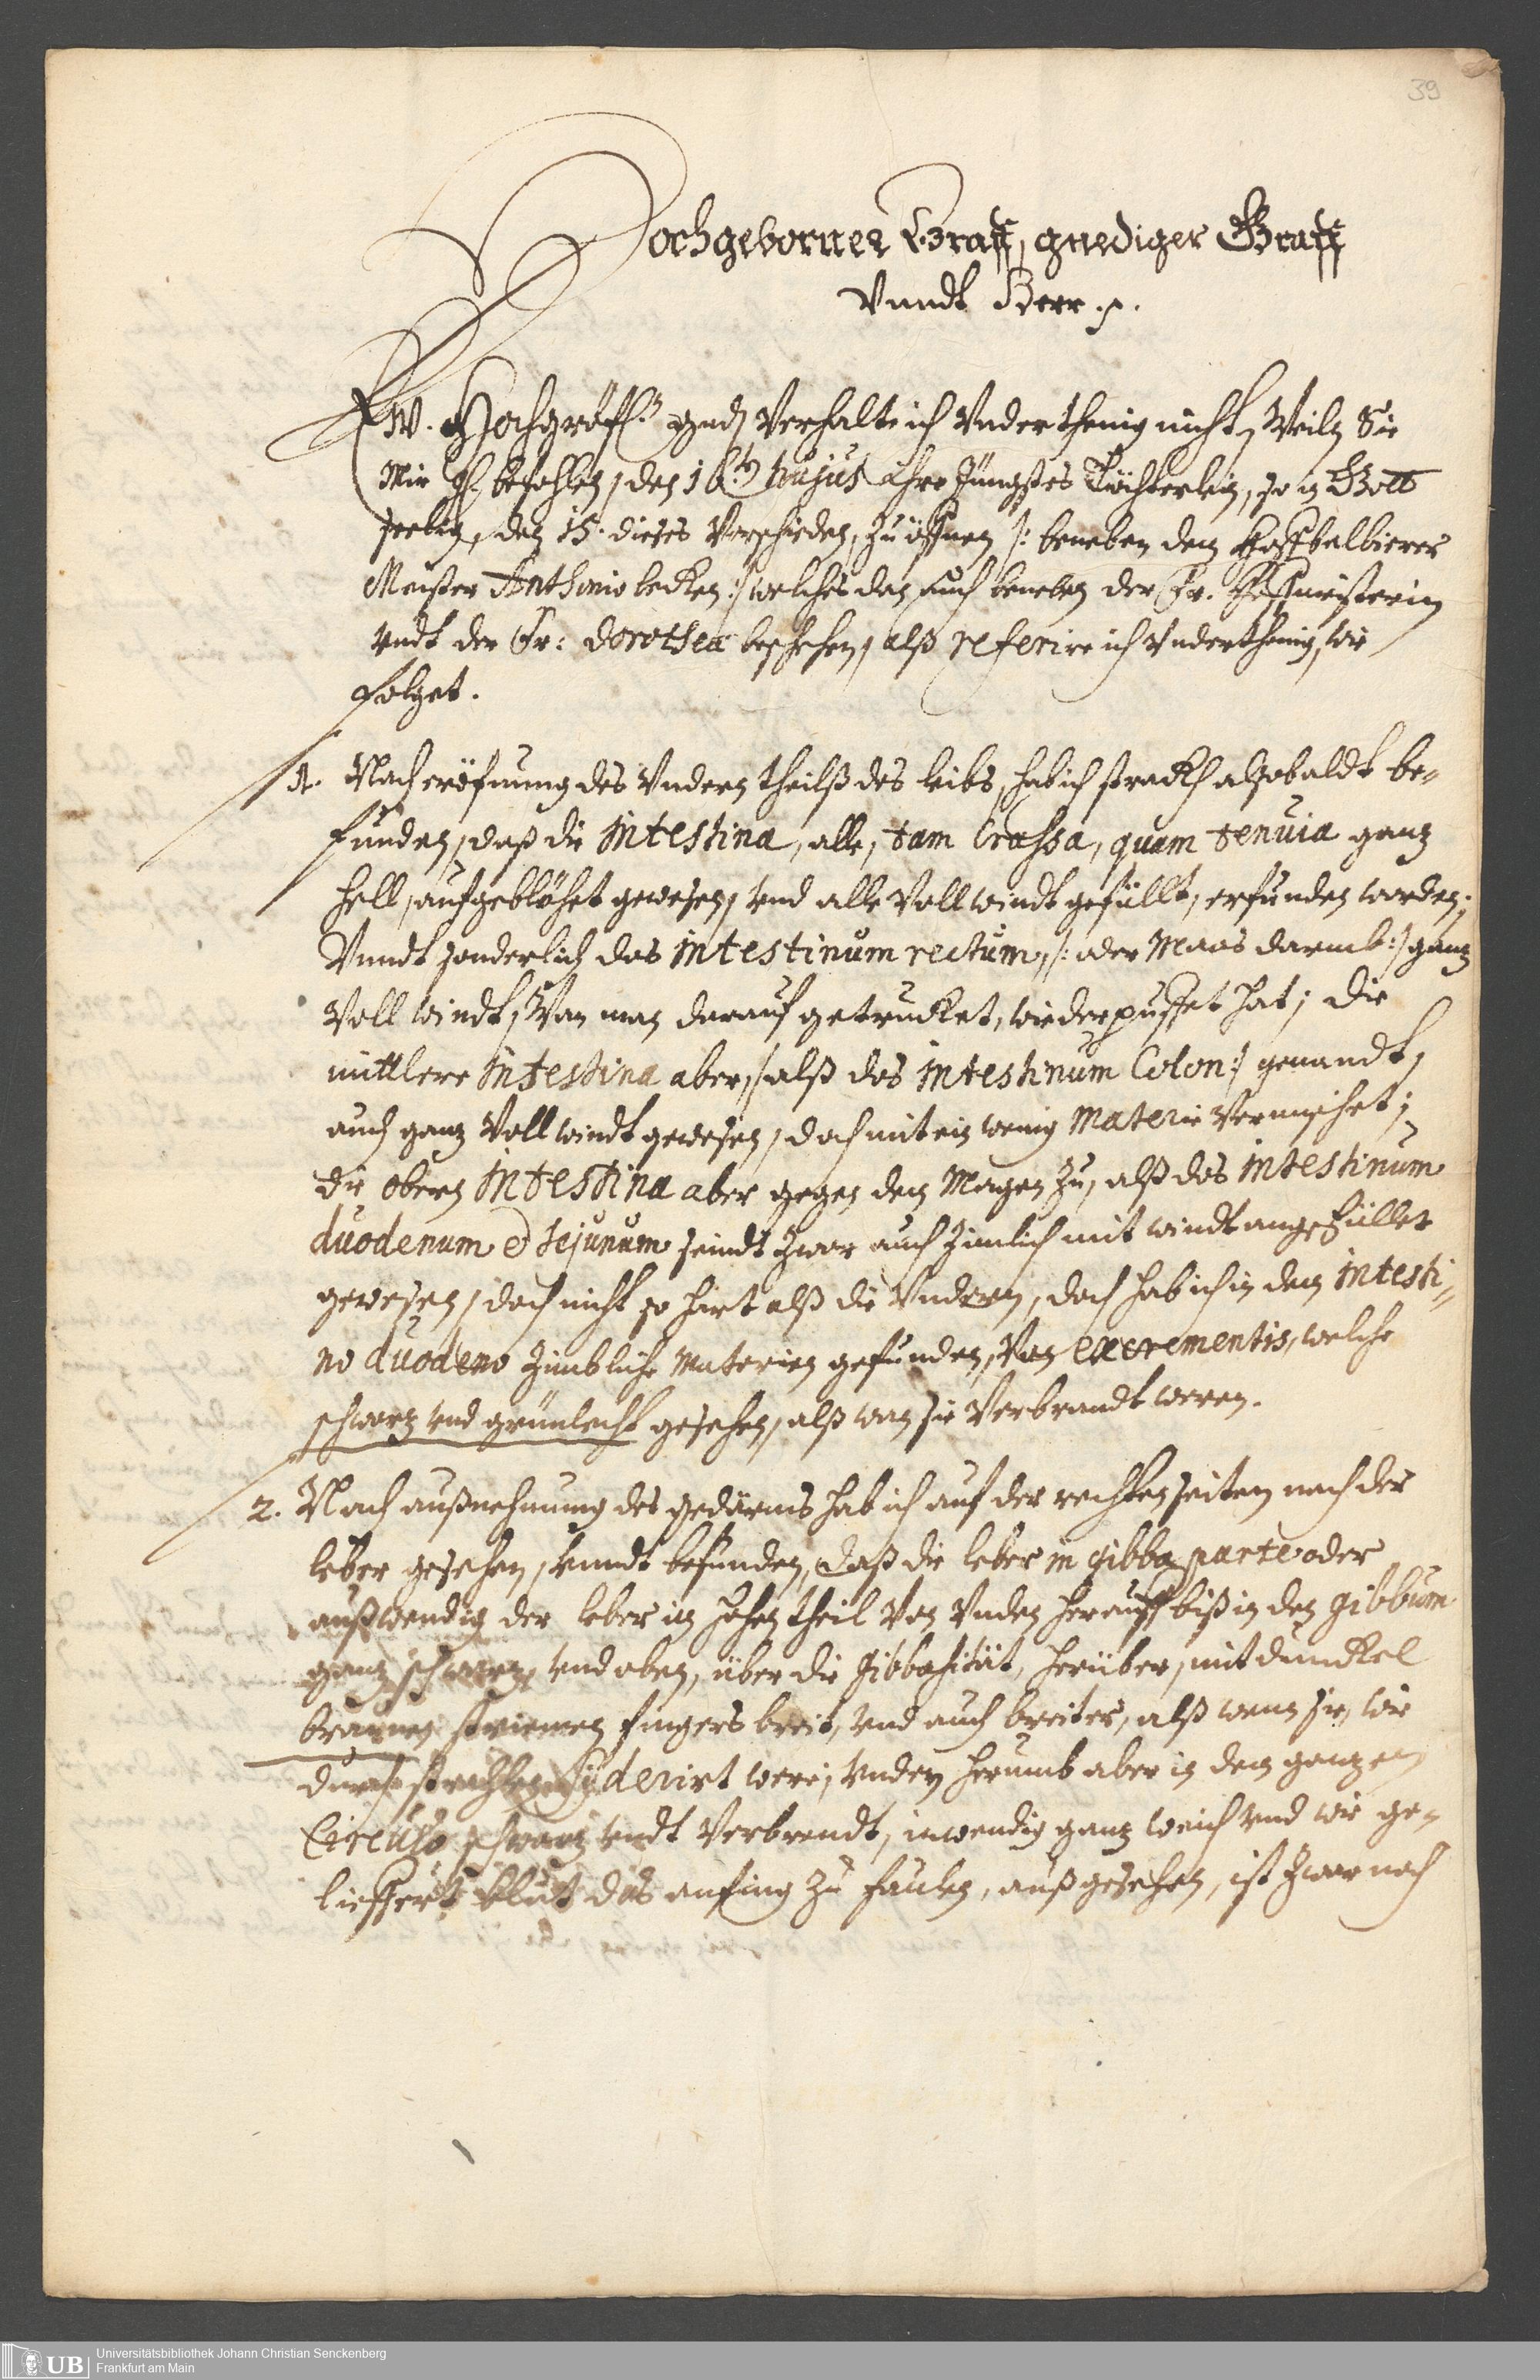 39
Hochgeborner Graff, gnediger Graff
Vnndt Herr.
Ew. Hochgräfl. Gnd. Verhalte ich Vnderthenig nicht, Weiln Sie
Mir befohlen, den 16ten hujus Ihre Jüngstes Töchterlein, so in Gott
seelig, den 15. dieses Verschieden, zu öffnen /: beneben dem Hoffbalbierer
Meister Anthonio becken :/ welches dan auch beneben der Fr. Hoffmeisterin
Vndt der Fr: Dorothea beschehen, alß referire ich Vnderthenig, wie
folget.
1. Nach eröfnung des Vndern theilß des leibs, hab ich strackh alsobaldt be-
funden, daß die Intestina, alle, tam Crassa, quam tenuia ganz
hell, aufgeblöhet gewesen, Vnd alle Voll windt gefüllt, erfunden worden;
Vnndt sonderlich das intestinum rectum, /: oder Maas darmb :/ ganz
Voll windt, Wan man darauf getruckhet, wieder gepuffet hat; die
mittlere Intestina aber, /: alß das intestinum Colon :/ genandt,
auch ganz Voll windt gewesen, doch mit ein wenig Materie Vermischet;
die obern Intestina aber gegen dem Magen zu, alß das intestinum
duodenum et Jejunum seindt zwar auch zimlich mit windt angefüllet
gewesen, doch nicht so hart alß die Vndern, doch hab ich in dem intesti-
no duodeno zimbliche Materien gefunden, Von excrementis, welche
schwarz Vnd grünlecht gesehen, alß wan sie Verbrandt weren.
2. Nach außnehmung des gedärms hab ich auf der rechten seiten nach der
leber gesehen, Vnndt befunden, daß die leber in gibba parte oder
außwendig der leber in hohen theil Von Vnden herauff biß in den gibbum
ganz schwarz, Vnd oben, über die Gibbositӓt, herüber, mit dunckel
braunen striemen fingers breit, Vnd auch breiter, alß wenn sie, wie
durch strahlen syderirt were, Vnden herumb aber in dem ganzen
Circulo schwarz Vndt Verbrendt, inwendig ganz weich Vnd wie ge-
lieffert bluet das anfing zu faulen, auß gesehen, ist zwar noch
UB Universitätsbibliothek Johann Christian Senckenberg
Frankfurt am Main